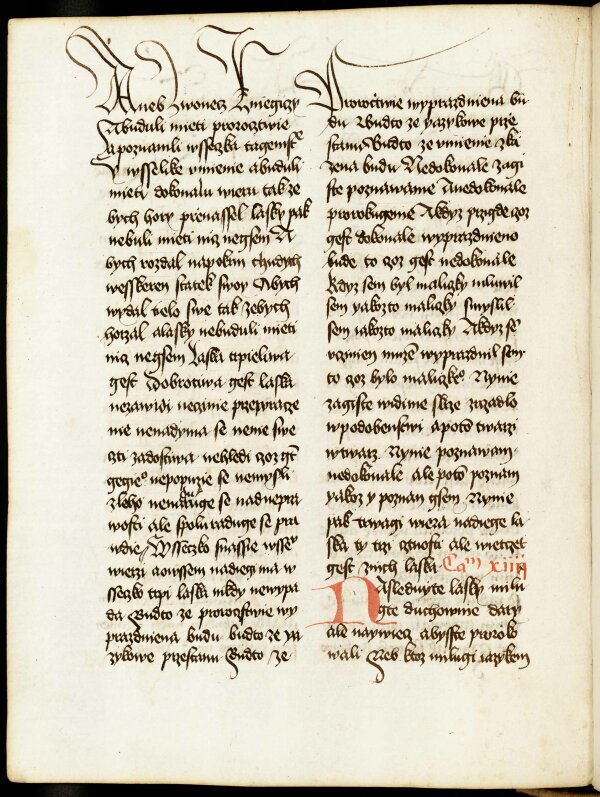 Aneb zwonecz Kniegizy
Abuduli mieti proroczstwie
Apoznamli wsseczka tagemstᵉ
Y wsselike vmienie abuduli
mieti dokonalu wieru tak ze
bych hory prenassel lasky pak
nebuli mieti nicz negsem A
bych rozdal napokrm chudych
wesskeren statek swoy Abych
wydal tielo swe tak zebych
horzal alasky nebuduli mieti
nicz negsem Laska trpieliwa
gest Dobrotiwa gest laska
nezawidi neczinie przewracze
nie nenadyma se nenie swe
czti zadostiwa nehledi czoz gt̄
gegieᵒ nepopuzie se nemysli
zleho neraduge se nad nepra
wosti ale spolu raduge se pra
wdie Wsseczko snassie wsseᵒ
wierzi aowssem nadieg ma w
sseczko trpi laska nikdy newypa
da Budto ze proroczstwie wy
prazdniena budu budto ze ya
zykowe przestanu Budto ze
Proroctwie wyprazdniena bu
du Budto ze yazykowe prze
stanu Budto ze vmienie zka
zena budu Nedokonale zagi
ste poznawame Anedokonale
prorokugeme Akdyz przigde czoz
gest dokonale wyprazdnieno
bude to czoz gest nedokonale
Kdyz sem byl maliczky mluwil
sem yakozto maliczky smyslil
sem iakozto maliczky Akdyz sē
vczinien muzē wyprazdnil sem
to czoz bylo maliczkeᵒ Nynie
zagiste widime skrze zrzadlo
wpodobenstwi apotō twarzi
wtwarz Nynie poznawam
nedokonale ale potō poznam
yakoz y poznan gsem Nynie
pak trwagi wiera nadiege la
ska ty trzi cztnosti ale wietczie
gest znich laska Caᵐ xiiij
Naslebuyte lasky milu
gte duchownie dary
ale naywiecz abysste proroko
wali Neb ktoz mlugi iazykem